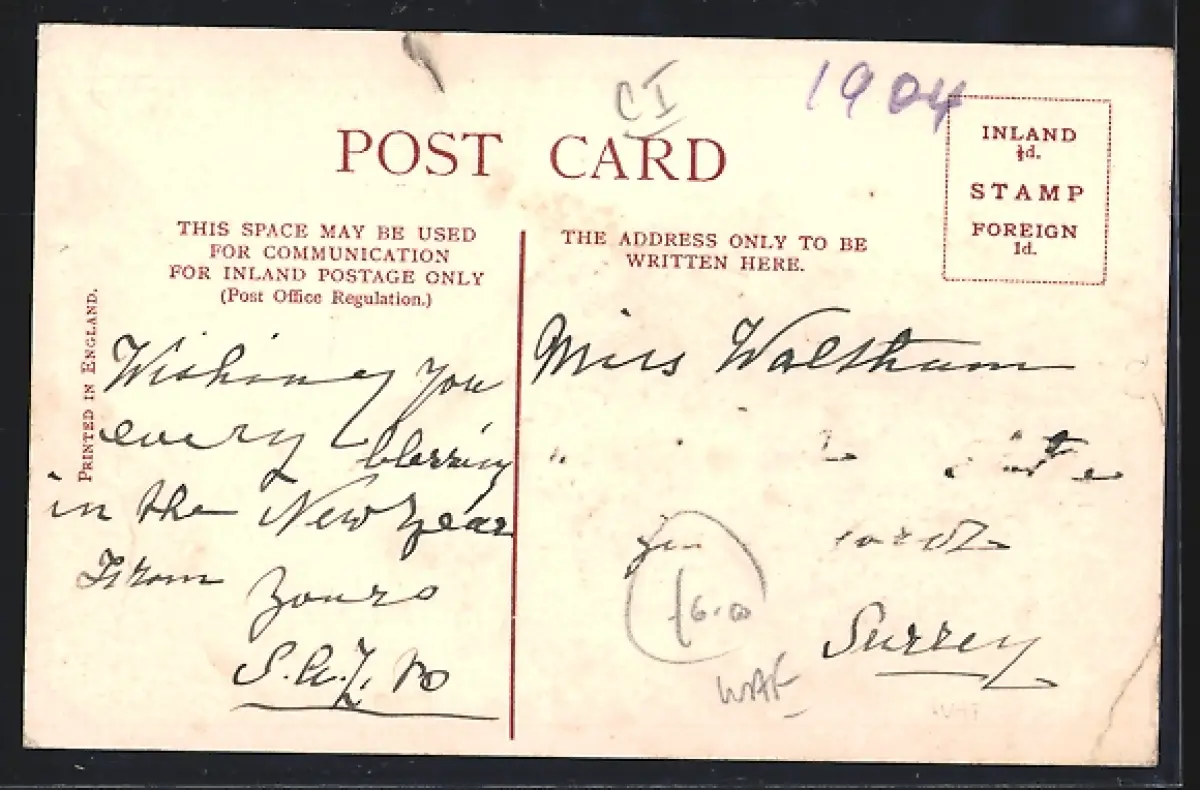 C I
1904
POST CARD
INLAND
½d.
STAMP
FOREIGN
1d.
THIS SPACE MAY BE USED
FOR COMMUNICATION
FOR INLAND POSTAGE ONLY
(Post Office Regulation.)
THE ADDRESS ONLY TO BE
WRITTEN HERE.
PRINTED IN ENGLAND.
Wishing you
every blessing
in the New Year
From
Yours
Miss Waltham
Surrey